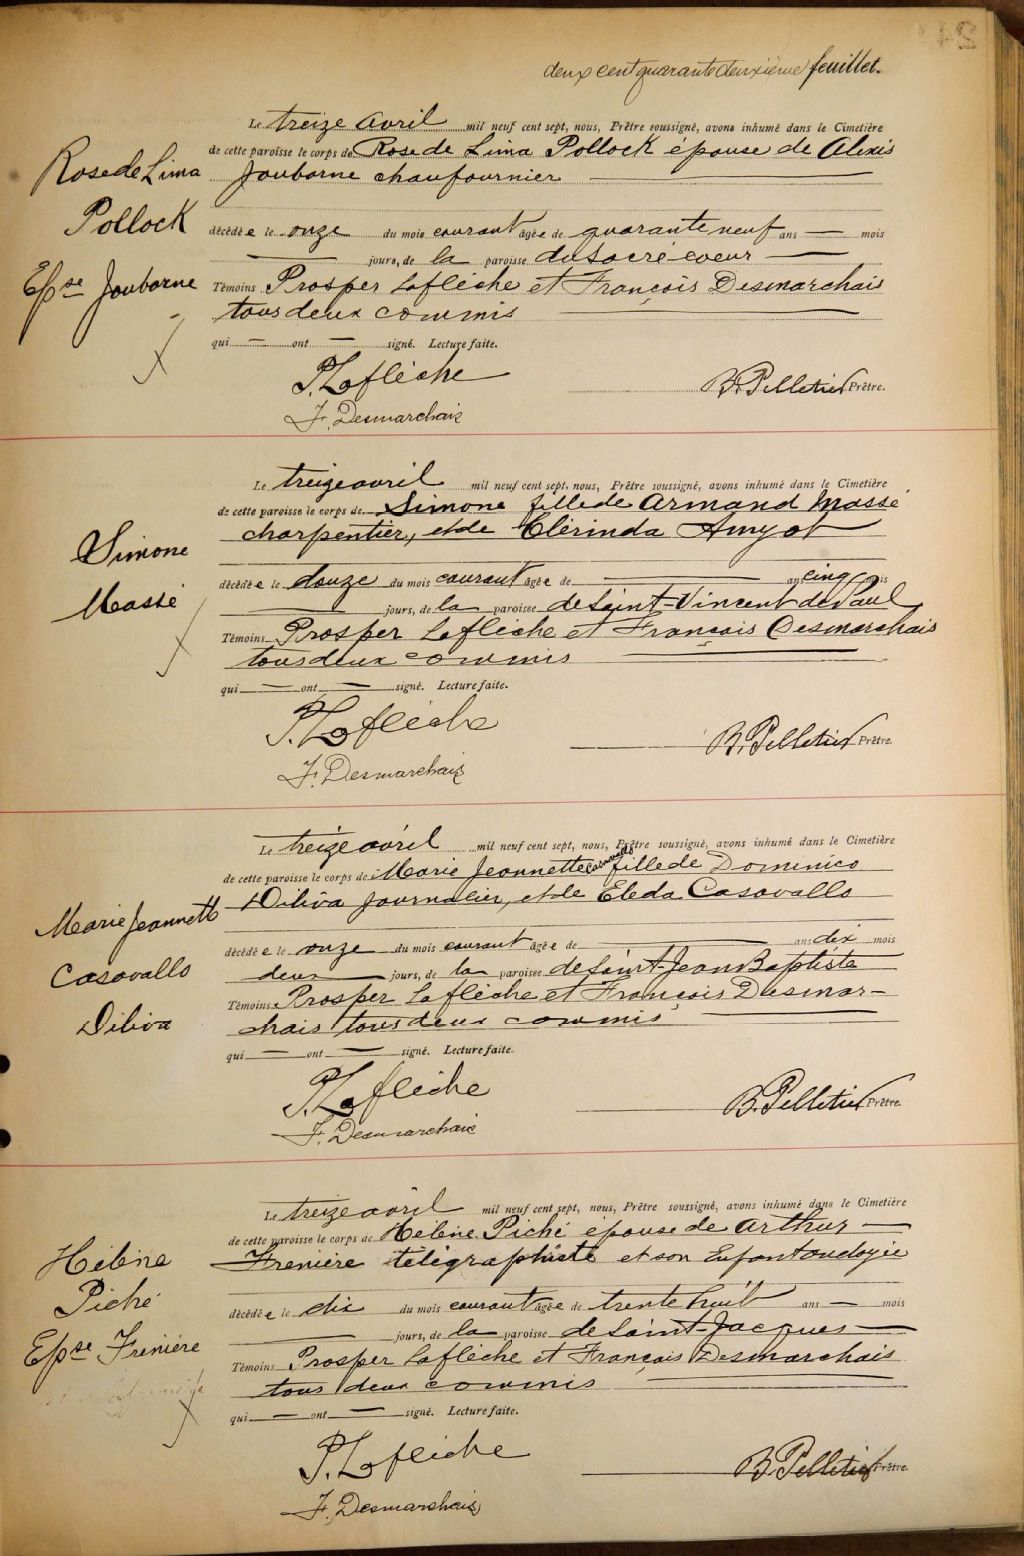 deux cent quarante deuxième feuillet.
Le treize avril mil neuf cent sept, nous, Prêtre soussigné, avons inhumé dans le Cimetière
de cette paroisse le corps de Rose de Lima Pollock épouse de Alexis
Joubarne chaufournier
Rose de Lima
Pollock
Epse Joubarne
décédée le onze du mois courant âgée de quarante neuf ans — mois
— jours, de la paroisse du Sacré-coeur —
Témoins Prosper Laflèche et François Desmarchais
tous deux commis
qui — ont — signé. Lecture faite.
P. Laflèche
B. Pelletier Prêtre.
F. Desmarchais
Le treize avril mil neuf cent sept, nous, Prêtre soussigné, avons inhumé dans le Cimetière
de cette paroisse le corps de Simone fille de Armand Massé
charpentier, et de Clérinda Amyot
Simone
Massé
décédée le douze du mois courant âgée de — ans cinq mois
— jours, de la paroisse de Saint-Vincent de Paul
Témoins Prosper Laflèche et François Desmarchais
tous deux commis
qui — ont — signé. Lecture faite.
P. Laflèche
B. Pelletier Prêtre.
F. Desmarchais
Le treize avril mil neuf cent sept, nous, Prêtre soussigné, avons inhumé dans le Cimetière
de cette paroisse le corps de Marie Jeannette Casavallo fille de Dominico
Diliva journalier, et de Eleda Casavallo
Marie Jeannette
Casavallo
Diliva
décédée le onze du mois courant âgée de — ans dix mois
deux jours, de la paroisse de Saint-Jean Baptiste
Témoins Prosper Laflèche et François Desmar-
chais tous deux commis
qui — ont — signé. Lecture faite.
P. Laflèche
B. Pelletier Prêtre.
F. Desmarchais
Le treize avril mil neuf cent sept, nous, Prêtre soussigné, avons inhumé dans le Cimetière
de cette paroisse le corps de Hélène Piché épouse de Arthur —
Frenière télégraphiste et son Enfant ondoyée
Hélène
Piché
Epse Frenière
décédée le dix du mois courant âgée de trente huit ans — mois
— jours, de la paroisse de Saint-Jacques —
Témoins Prosper Laflèche et François Desmarchais
tous deux commis
qui — ont — signé. Lecture faite.
P. Laflèche
B. Pelletier Prêtre.
F. Desmarchais